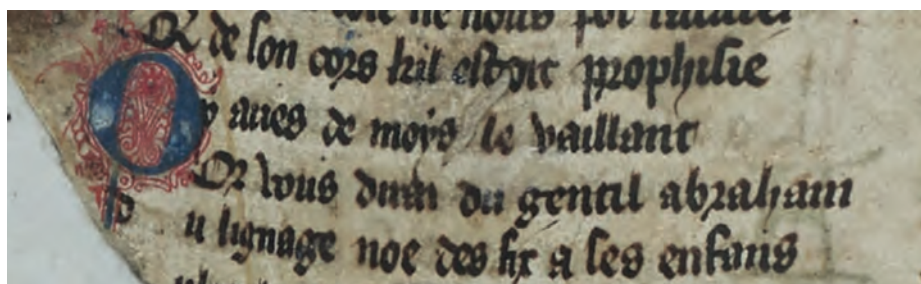 ne nous pot
Or de son cors kil estoit prophisie
Oy aues de moys le vaillant
Or vous dirai du gentil abraham
Du lignage noe des fix a ses enfans